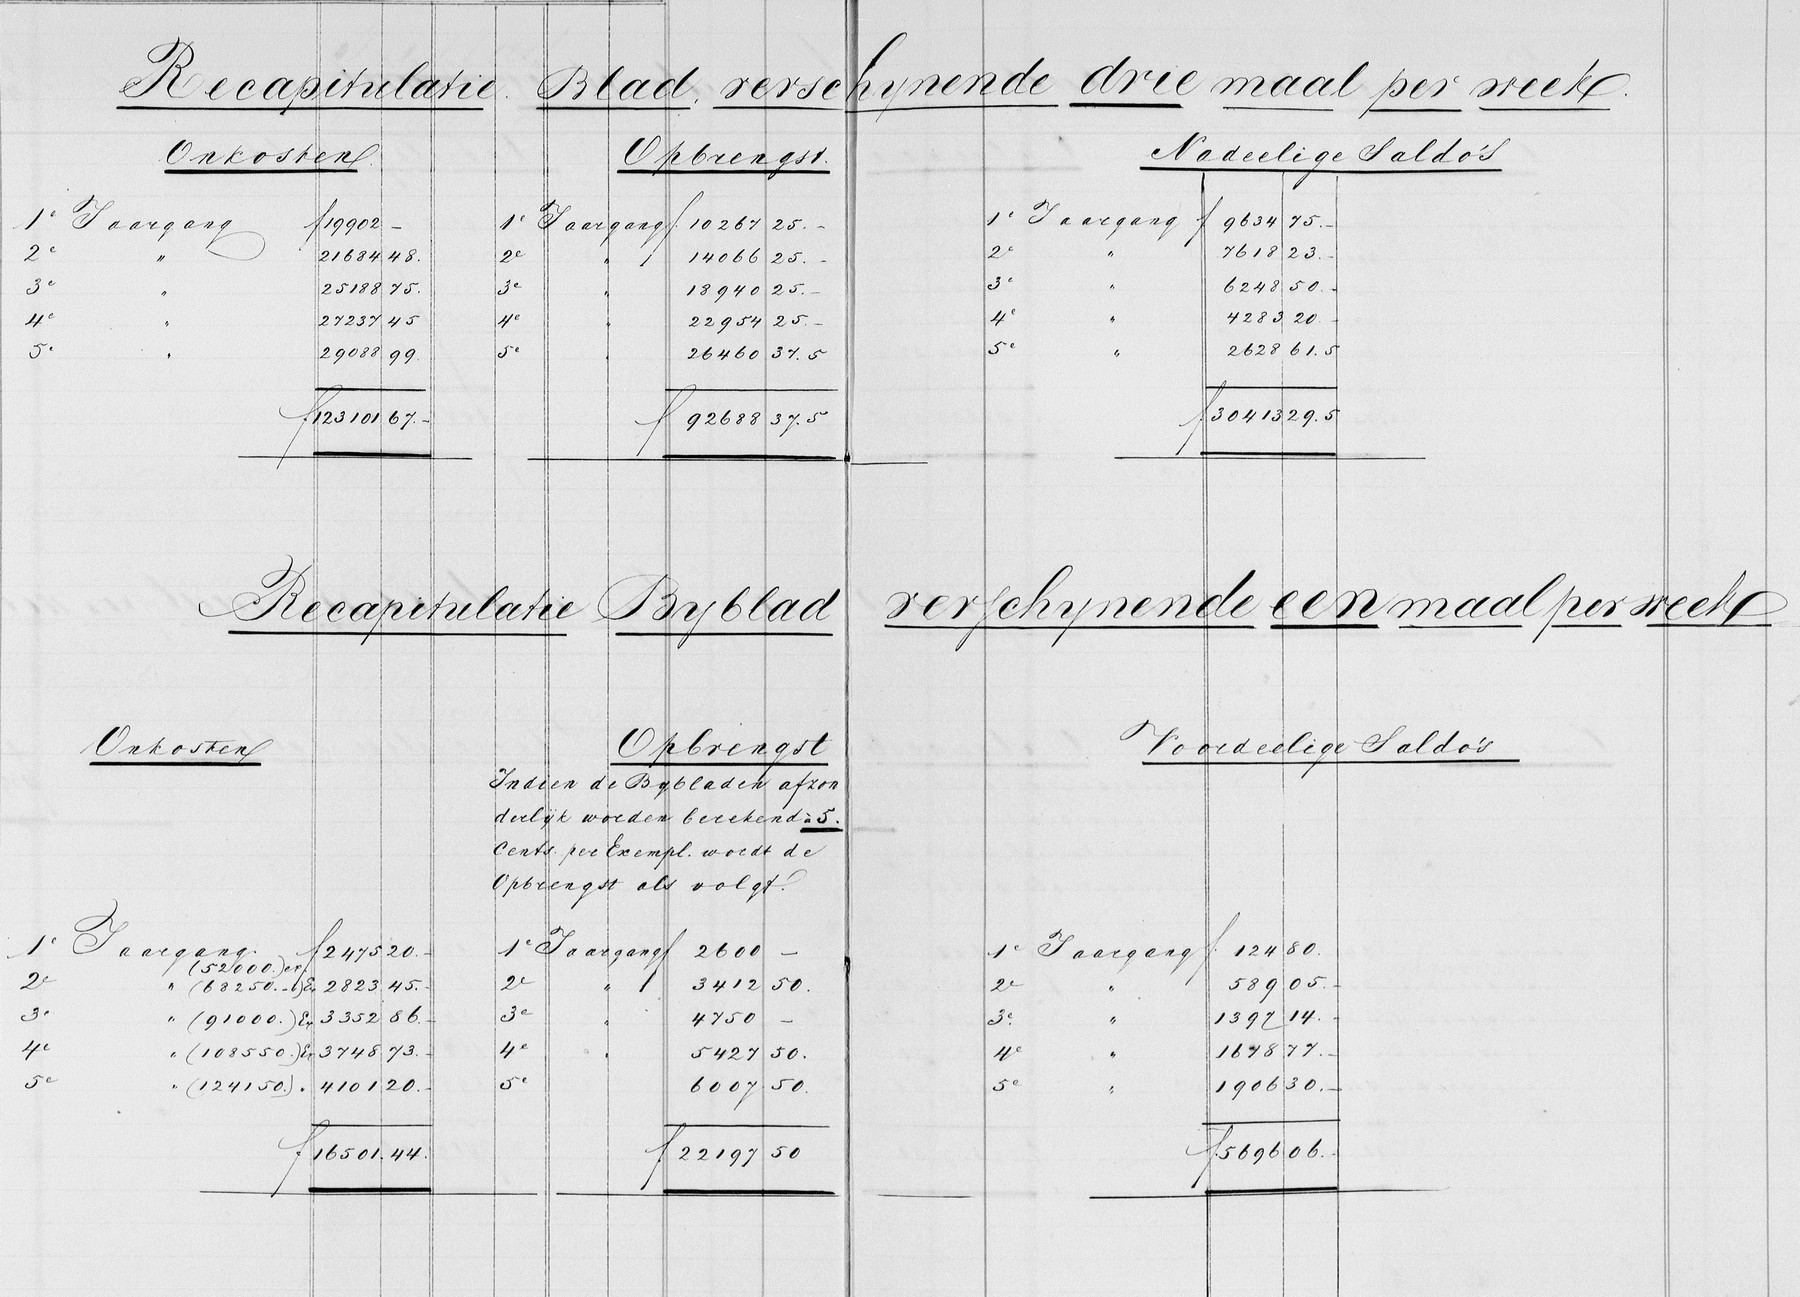 Recapitulatie. Blad. verschynende drie maal per week.
Onkosten. Opbrengst. Nadeelige Saldo's
1e Jaargang f 19902 - 1e Jaargang f 10267 25. - 1e Jaargang f 9634 75. -
2e " 21684 48. 2e " 14066 25. - 2e " 7618 23. -
3e " 25188 75. 3e " 18940 25. - 3e " 6248 50. -
4e " 27237 45 4e " 22954 25. - 4e " 4283 20 -
5e " 29088 99. 5e " 26460 37.5 5e " 2628 61.5
f 123101 67. - f 92688 37.5 f 30413 29.5
Recapitulatie Byblad verschynende een maal per week
Onkosten Opbrengst Voordeelige Saldo's
Indien de Bybladen afzon
derlijk worden berekend à 5.
Cents. per Exempl. wordt de
Opbrengst als volgt.
1e Jaargang. f 2475 20. - 1e Jaargang f 2600 - 1e Jaargang f 124 80.
(52000.) ex.
2e " (68250. -) Ex 2823 45. - 2e " 3412 50. 2e " 589 05. -
3e " (91000.) Ex 3352 86. - 3e " 4750 - 3e. " 1397 14. -
4e " (108550.) Ex 3748 73. - 4e " 5427 50. 4e " 1678 77. -
5e " (124150.) " 4101 20. - 5e 6007 50. 5e " 1906 30. -
f 16501. 44. f 22197 50 f 5696 06. -